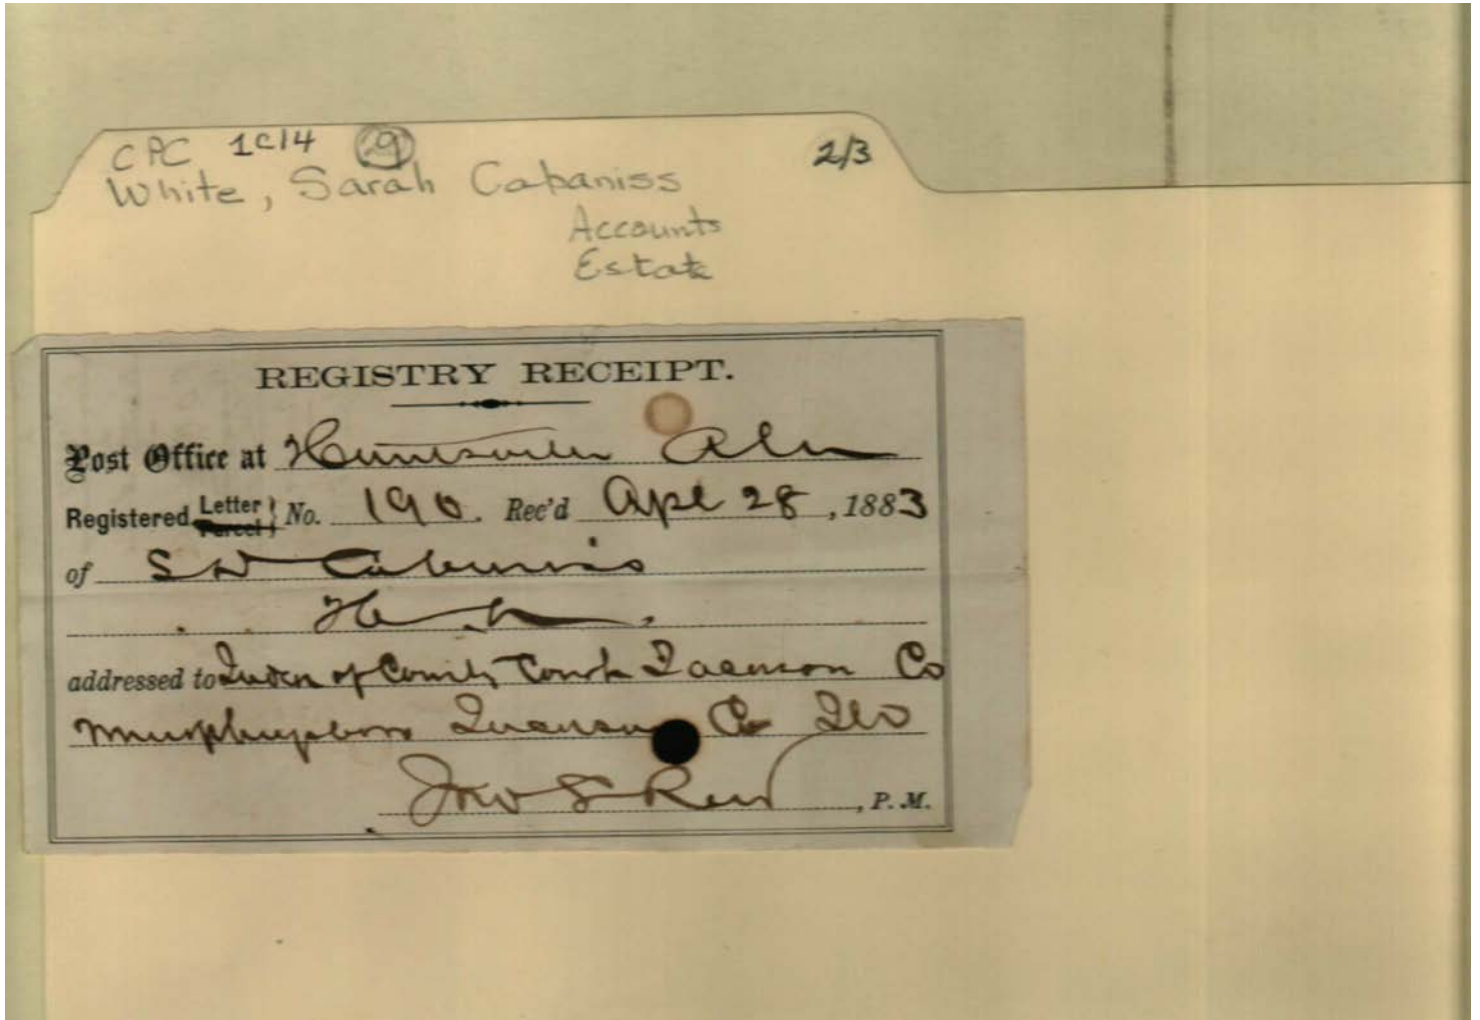 CPC 1C14 29
2/3
White, Sarah Cabaniss
Accounts
Estate
REGISTRY RECEIPT.
Post Office at Huntsville Ala
Registered Letter Parcel } No. 190. Rec'd Apl 28, 1883
of S D Cabaniss
addressed to of County Court Jackson Co
Murphysboro Jackson Co Ills
, P. M.